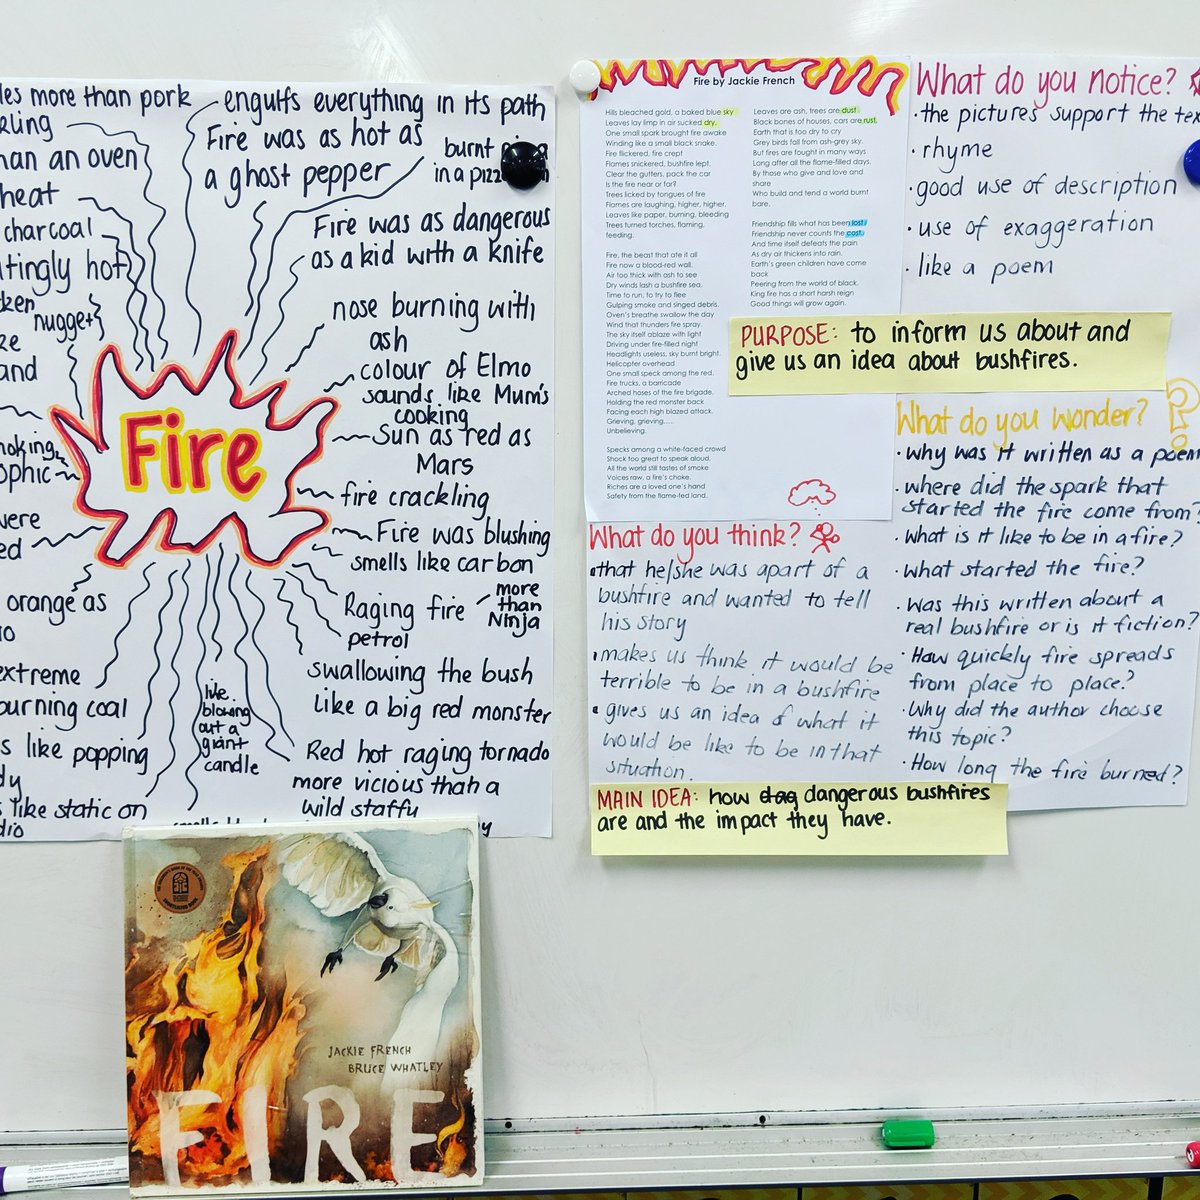 les more than pork
engulfs everything in its path
kling
Fire was as hot as
a ghost pepper
burnt
in a pizz
han an oven
heat
charcoal
tingly hot
nugget
Fire was as dangerous
as a kid with a knife
nose burning with
ash
and
colour of Elmo
sounds like Mum's
cooking
Sun as red as
Mars
Fire
moking
ophic
fire crackling
were
ed
Fire was blushing
smells like carbon
orange as
Raging fire
more
than
Ninja
petrol
extreme
urning coal
swallowing the bush
like a big red monster
like
blowing
out a
giant
candle
s like popping
dy
Red hot raging tornado
more vicious than a
wild staffy
s like static on
dio
JACKIE FRENCH
BRUCE WHATLEY
FIRE
Fire by Jackie French
Hills bleached gold, a baked blue sky
Leaves lay limp in air sucked dry.
One small spark brought fire awake
Winding like a small black snake.
Fire flickered, fire crept
Flames snickered, bushfire lept.
Clear the gutters, pack the car
Is the fire near or far?
Trees licked by tongues of fire
Flames are laughing, higher, higher.
Leaves like paper, burning, bleeding
Trees turned torches, flaming,
feeding.
Fire, the beast that ate it all
Fire now a blood-red wall.
Air too thick with ash to see
Dry winds lash a bushfire sea.
Time to run, to try to flee
Gulping smoke and singed debris.
Oven's breathe swallow the day
Wind that thunders fire spray.
The sky itself ablaze with light
Driving under fire-filled night
Headlights useless, sky burnt bright.
Helicopter overhead
One small speck among the red.
Fire trucks, a barricade
Arched hoses of the fire brigade.
Holding the red monster back
Facing each high blazed attack.
Grieving, grieving.....
Unbelieving.
Specks among a white-faced crowd
Shock too great to speak aloud.
All the world still tastes of smoke
Voices raw, a fire's choke.
Riches are a loved one's hand
Safety from the flame-fed land.
Leaves are ash, trees are dust
Black bones of houses, cars are rust.
Earth that is too dry to cry
Grey birds fall from ash-grey sky.
But fires are fought in many ways
Long after all the flame-filled days.
By those who give and love and
share
Who build and tend a world burnt
bare.
Friendship fills what has been lost
Friendship never counts the cost.
And time itself defeats the pain
As dry air thickens into rain.
Earth's green children have come
back
Peering from the world of black.
King fire has a short harsh reign
Good things will grow again.
What do you notice?
· the pictures support the tex
· rhyme
· good use of description
· use of exaggeration
· like a poem
PURPOSE: to inform us about and
give us an idea about bushfires.
What do you wonder?
· why was it written as a poem
· where did the spark that
started the fire come from?
· What is it like to be in a fire?
· What started the fire?
· Was this written about a
real bushfire or is it fiction?
· How quickly fire spreads
from place to place?
· Why did the author choose
this topic?
· How long the fire burned?
What do you think?
· that he/she was apart of a
bushfire and wanted to tell
his story
· makes us think it would be
terrible to be in a bushfire
· gives us an idea of what it
would be like to be in that
situation.
MAIN IDEA: how dag dangerous bushfires
are and the impact they have.